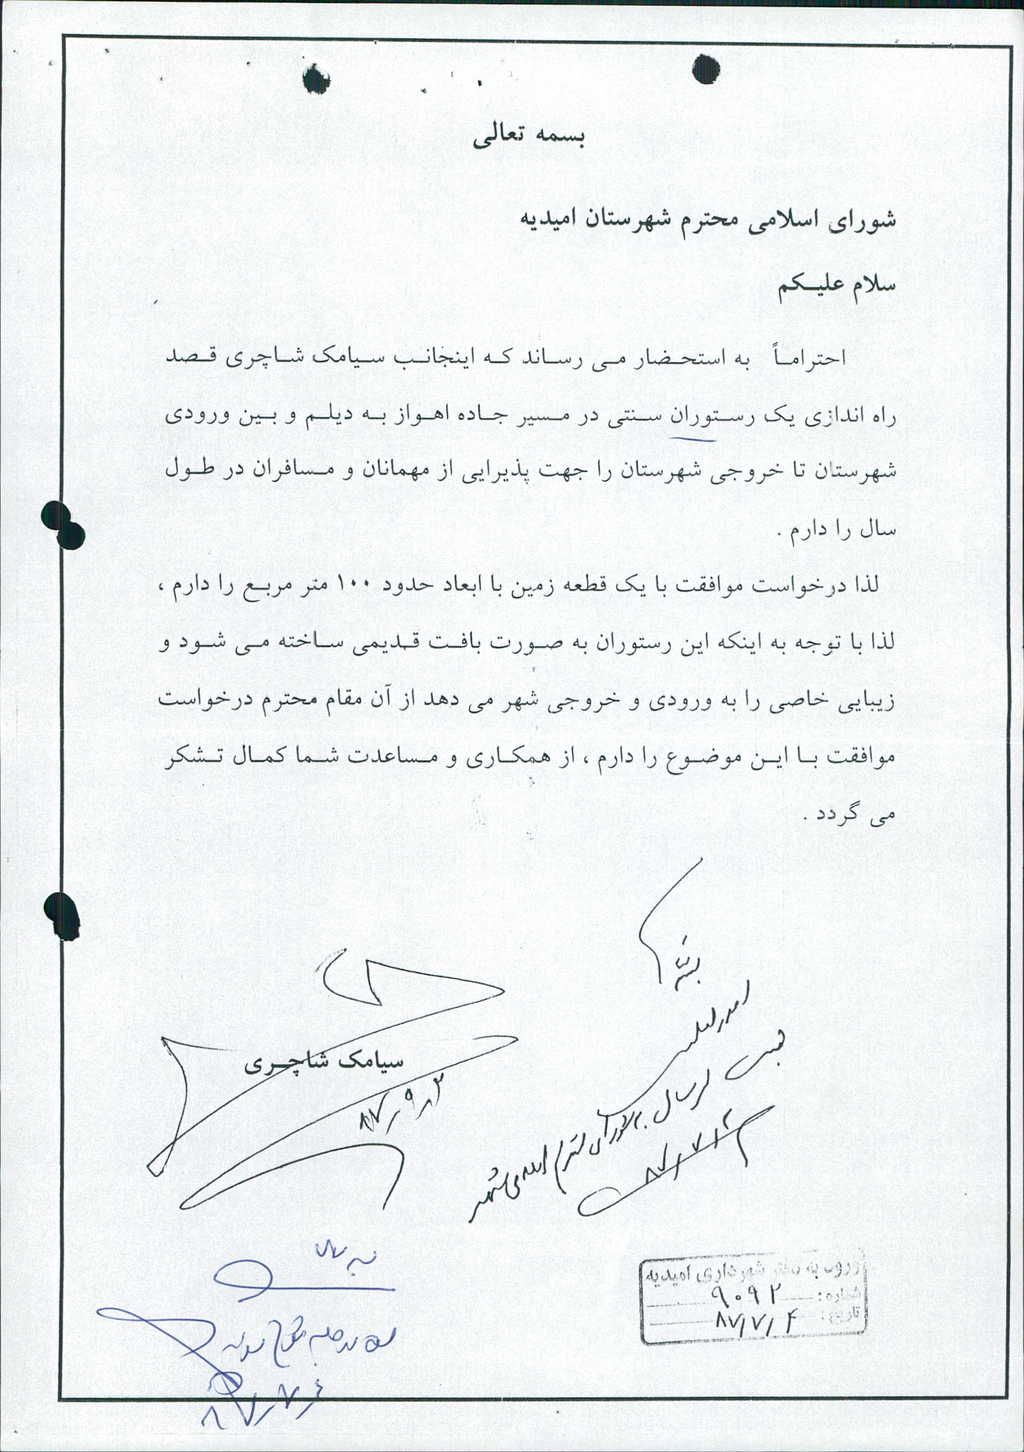 بسمه تعالی
شورای اسلامی محترم شهرستان امیدیه
سلام علیکم
احتراماً به استحضار می رساند که اینجانب سیامک شاچری قصد
راه اندازی یک رستوران سنتی در مسیر جاده اهواز به دیلم و بین ورودی
شهرستان تا خروجی شهرستان را جهت پذیرایی از مهمانان و مسافران در طول
سال را دارم .
لذا درخواست موافقت با یک قطعه زمین با ابعاد حدود ۱۰۰ منر مربع را دارم ،
لذا با توجه به اینکه این رستوران به صورت بافت قدیمی ساخته می شود و
زیبایی خاصی را به ورودی و خروجی شهر می دهد از آن مقام محترم درخواست
موافقت با این موضوع را دارم ، از همکاری و مساعدت شما کمال تشکر
می گردد .
سیامک شاچری
ارسال به شورای محترم اسلامی شهر
۸۷/۷/۲
ورود به دفتر شهرداری امیدیه
شماره: ۹۰۹۲
تاریخ: ۸۷/۷/۴
۸۷/۷/۶